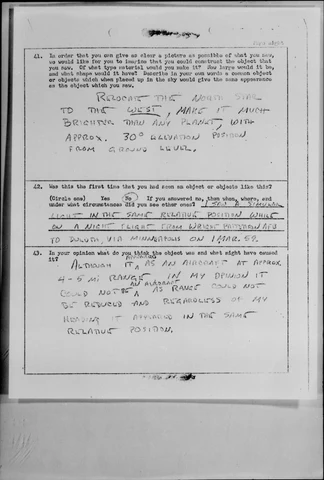 41. In order that you can give as clear a picture as possible of what you saw,
we would like for you to imagine that you could construct the object that
you saw. Of what type material would you make it? How large would it be,
and what shape would it have? Describe in your own words a common object
or objects which when placed up in the sky would give the same appearance
as the object which you saw.
RELOCATE THE NORTH STAR
TO THE WEST, MAKE IT MUCH
BRIGHTER THAN ANY PLANET, WITH
APPROX. 30° ELEVATION POSITION
FROM GROUND LEVEL.
42. Was this the first time that you had seen an object or objects like this?
(Circle one) Yes No If you answered no, then when, where, and
under what circumstances did you see other ones? I SAW A SIMULAR
LIGHT IN THE SAME RELATIVE POSITION WHILE
ON A NIGHT FLIGHT FROM WRIGHT PATTERSON AFB
TO DULUTH, VIA MINNEAPOLIS ON 1 MAR. 59.
43. In your opinion what do you think the object was and what might have caused
it? ALTHOUGH IT APPEARED AS AN AIRCRAFT AT APPROX.
4-5 MI RANGE IN MY OPINION IT
COULD NOT BE AN AIRCRAFT, AS RANGE COULD NOT
BE REDUCED AND REGARDLESS OF MY
HEADING IT APPEARED IN THE SAME
RELATIVE POSITION.